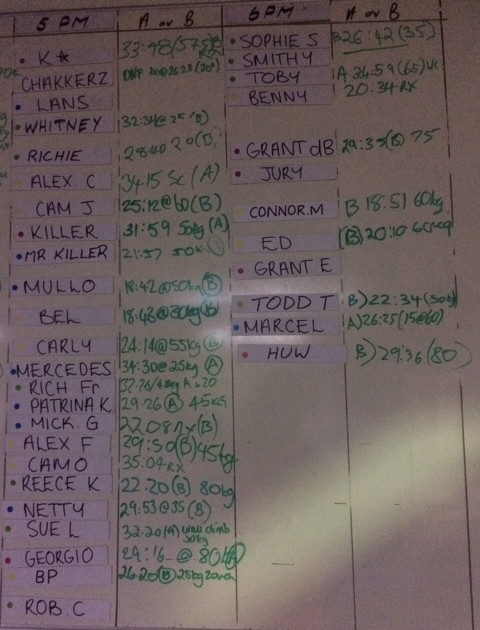 5 PM A OR B
K☆ 33:48(57.5)B
CHAKKERZ DNF
LANS
WHITNEY 32:34@25(B)
RICHIE 28:40 20(D)
ALEX. C 34:15 Sc (A)
CAM J 25:12@60(B)
KILLER 31:59 50kg (A)
MR KILLER 21:57 50K
MULLO 18:42@50kg (B)
BEL 18:48@30kg
CARLY 24:14@55kg
MERCEDES 34:30@25kg (A)
RICH Fr
PATRINA K 29:26 (A) 45KG
MICK. G 22:08 rx (B)
ALEX F 29:50(B)45kg
CAMO 35:04 RX
REECE K 22:20 (B) 80kg
NETTY 29:53@35 (B)
SUE L 32:20(A) wall climb 30kg
GEORGIO 29:16 @ 80kg (A)
BP 26:20(B)25kg
ROB. C
6PM A OR B
SOPHIE S B26:42(35)
SMITHY
TOBY A 34:59(65)
BENNY 20:34 RX
GRANT dB 29:35(B) 75
JURY
CONNOR.M B 18:51 60kg
ED (B)20:10
GRANT E
TODD T B)22:34(50kg)
MARCEL A)26:25(15@60)
HUW B)29:36(80)